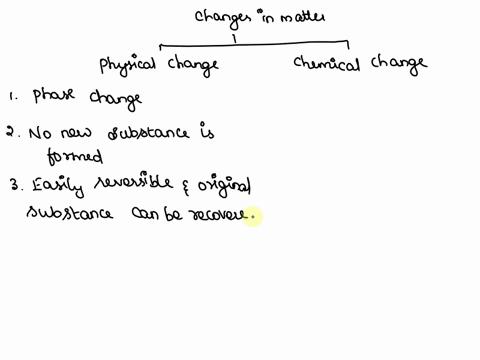 Changes in matter
Physical change Chemical change
1. Phase change
2. No new substance is
formed
3. Easily reversible & original
substance can be recovere